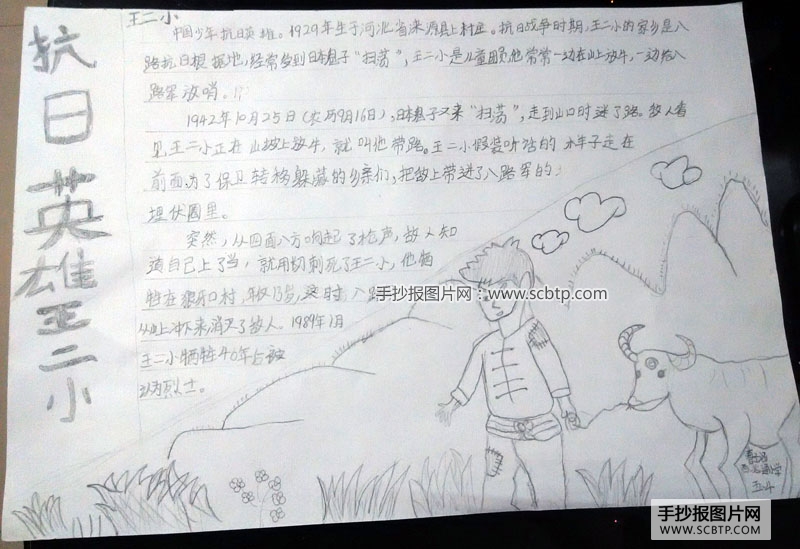 抗日英雄王二小
王二小
中国少年抗日英雄。1929年生于河北省涞源县上村庄。抗日战争时期,王二小的家乡是八
路抗日根据地,经常受到日本鬼子"扫荡",王二小是儿童团员,他常常一边在山上放牛,一边给八
路军放哨。
1942年10月25日(农历9月16日),日本鬼子又来"扫荡",走到山口时迷了路。敌人看
见王二小正在山坡上放牛,就叫他带路。王二小假装听话的 走在
前面,为了保卫转移躲藏的乡亲们,把敌上带进了八路军的
埋伏圈里。
突然,从四面八方响起了枪声,敌人知
道自己上了当,就用切刺死了王二小,他牺
牲在狼牙口村, 这时八路
从山上冲下来消灭了敌人。1989年1月
王二小牺牲40年后被
认为烈士。
手抄报图片网:www.scbtp.com
五4
手抄报图片网
WWW.SCBTP.COM